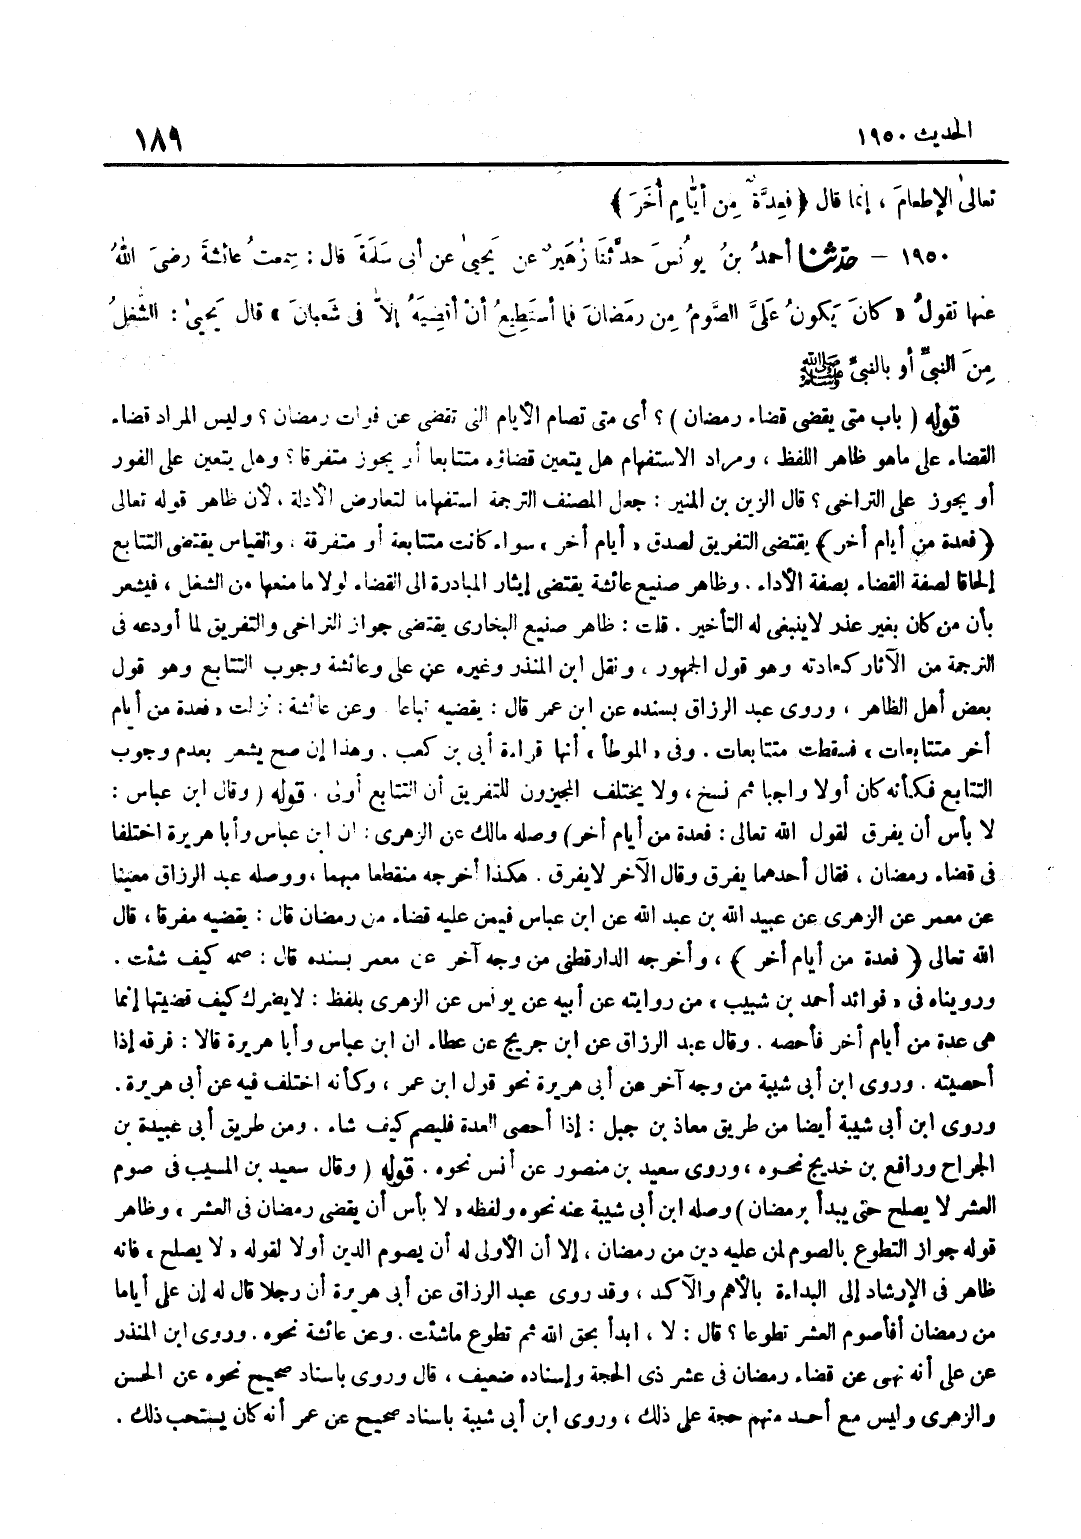 الحديث ١٩٥٠
١٨٩
تعالىٰ الإطعامَ ، إنما قال ﴿ فعِدَّةٌ مِن أيَّامٍ أُخَرَ ﴾
١٩٥٠ – حدّثنا أحمدُ بنُ يونُسَ حدَّثنَا زُهَيرٌ عن يَحيىٰ عن أبى سَلمَةَ قال : سمعتُ عائشةَ رضىَ اللهُ
عنها تقولُ « كانَ يَكونُ علىَّ الصَّومُ مِن رمَضانَ فما أستطِيعُ أنْ أقضِيَهُ إلاَّ فى شَعبانَ » قال يَحيىٰ : الشُّغلُ
مِنَ النبىِّ أو بالنبىِّ ﷺ
قوله ( باب متى يقضى قضاء رمضان ) ؟ أى متى تصام الأيام التى تقضى عن فوات رمضان ؟ وليس المراد قضاء
القضاء على ماهو ظاهر اللفظ ، ومراد الاستفهام هل يتعين قضاؤه متتابعا أو يجوز متفرقا ؟ وهل يتعين على الفور
أو يجوز على التراخى ؟ قال الزين بن المنير : جعل المصنف الترجمة استفهاما لتعارض الأدلة ، لأن ظاهر قوله تعالى
﴿ فعدة من أيام أخر ﴾ يقتضى التفريق لصدق « أيام أخر » سواء كانت متتابعة أو متفرقة ، والقياس يقتضى التتابع
إلحاقا لصفة القضاء بصفة الأداء . وظاهر صنيع عائشة يقتضى إيثار المبادرة الى القضاء لولا ما منعها من الشغل ، فيشعر
بأن من كان بغير عذر لاينبغى له التأخير . قلت : ظاهر صنيع البخارى يقتضى جواز التراخى والتفريق لما أودعه فى
الترجمة من الآثار كعادته وهو قول الجمهور ، ونقل ابن المنذر وغيره عن على وعائشة وجوب التتابع وهو قول
بعض أهل الظاهر ، وروى عبد الرزاق بسنده عن ابن عمر قال : يقضيه تباعا . وعن عائشة : نزلت « فعدة من أيام
أخر متتابعات » فسقطت متتابعات . وفى « الموطأ » أنها قراءة أبى بن كعب . وهذا إن صح يشعر بعدم وجوب
التتابع فكأنه كان أولا واجبا ثم نسخ ، ولا يختلف المجيزون للتفريق أن التتابع أولى . قوله ( وقال ابن عباس :
لا بأس أن يفرق لقول الله تعالى : فعدة من أيام أخر ) وصله مالك عن الزهرى : ان ابن عباس وأبا هريرة اختلفا
فى قضاء رمضان ، فقال أحدهما يفرق وقال الآخر لايفرق . هكذا أخرجه منقطعا مبهما ، ووصله عبد الرزاق معينا
عن معمر عن الزهرى عن عبيد الله بن عبد الله عن ابن عباس فيمن عليه قضاء من رمضان قال : يقضيه مفرقا ، قال
الله تعالى ﴿ فعدة من أيام أخر ﴾ ، وأخرجه الدارقطنى من وجه آخر عن معمر بسنده قال : صمه كيف شئت .
ورويناه فى « فوائد أحمد بن شبيب » من روايته عن أبيه عن يونس عن الزهرى بلفظ : لايضرك كيف قضيتها إنما
هى عدة من أيام أخر فأحصه . وقال عبد الرزاق عن ابن جريج عن عطاء ان ابن عباس وأبا هريرة قالا : فرقه إذا
أحصيته . وروى ابن أبى شيبة من وجه آخر عن أبى هريرة نحو قول ابن عمر ، وكأنه اختلف فيه عن أبى هريرة .
وروى ابن أبى شيبة أيضا من طريق معاذ بن جبل : إذا أحصى العدة فليصم كيف شاء . ومن طريق أبى عبيدة بن
الجراح ورافع بن خديج نحوه ، وروى سعيد بن منصور عن أنس نحوه . قوله ( وقال سعيد بن المسيب فى صوم
العشر لا يصلح حتى يبدأ برمضان ) وصله ابن أبى شيبة عنه نحوه ولفظه « لا بأس أن يقضى رمضان فى العشر » وظاهر
قوله جواز التطوع بالصوم لمن عليه دين من رمضان ، إلا أن الأولى له أن يصوم الدين أولا لقوله « لا يصلح » فانه
ظاهر فى الإرشاد إلى البداءة بالأهم والآكد ، وقد روى عبد الرزاق عن أبى هريرة أن رجلا قال له إن على أياما
من رمضان أفأصوم العشر تطوعا ؟ قال : لا ، ابدأ بحق الله ثم تطوع ماشئت . وعن عائشة نحوه . وروى ابن المنذر
عن على أنه نهى عن قضاء رمضان فى عشر ذى الحجة وإسناده ضعيف ، قال وروى باسناد صحيح نحوه عن الحسن
والزهرى وليس مع أحد منهم حجة على ذلك ، وروى ابن أبى شيبة باسناد صحيح عن عمر أنه كان يستحب ذلك .